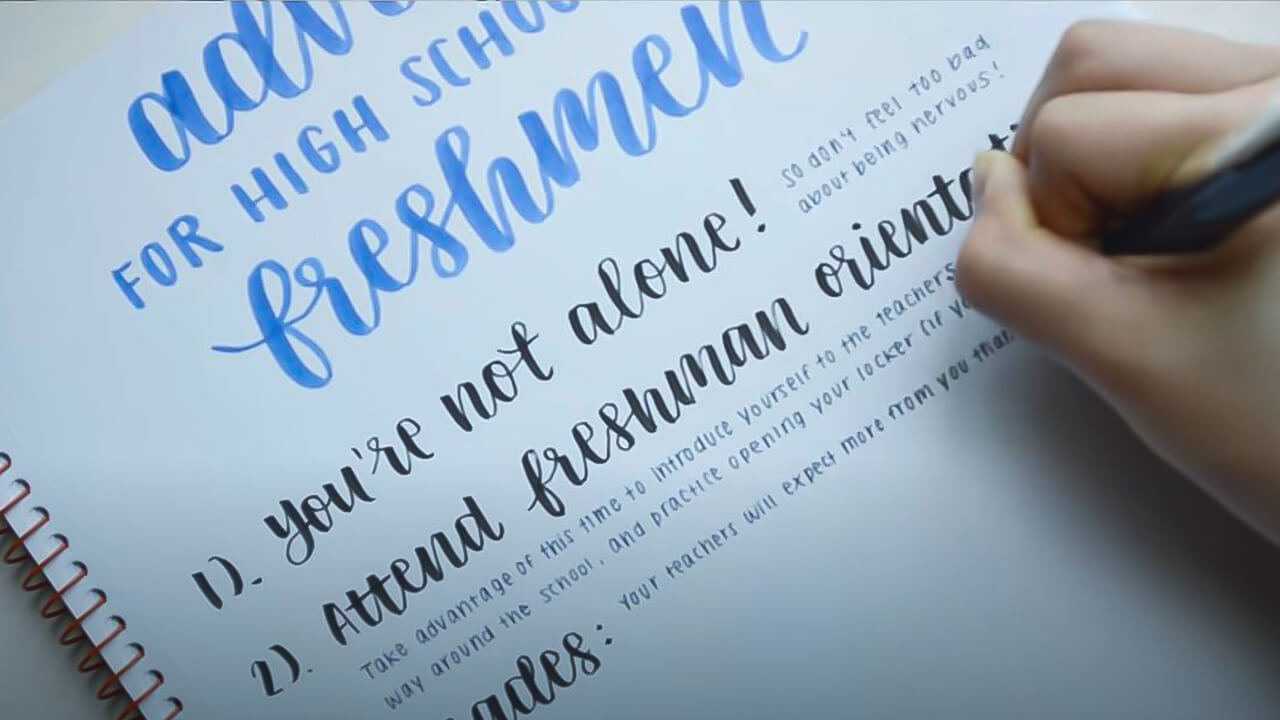 FOR HIGH
freshmen
1). you're not alone! so don't feel too bad
about being nervous!
2). Attend freshman
Take advantage of this time to introduce yourself to the teachers
way around the school, and practice opening your locker (if
your teachers will expect more from you